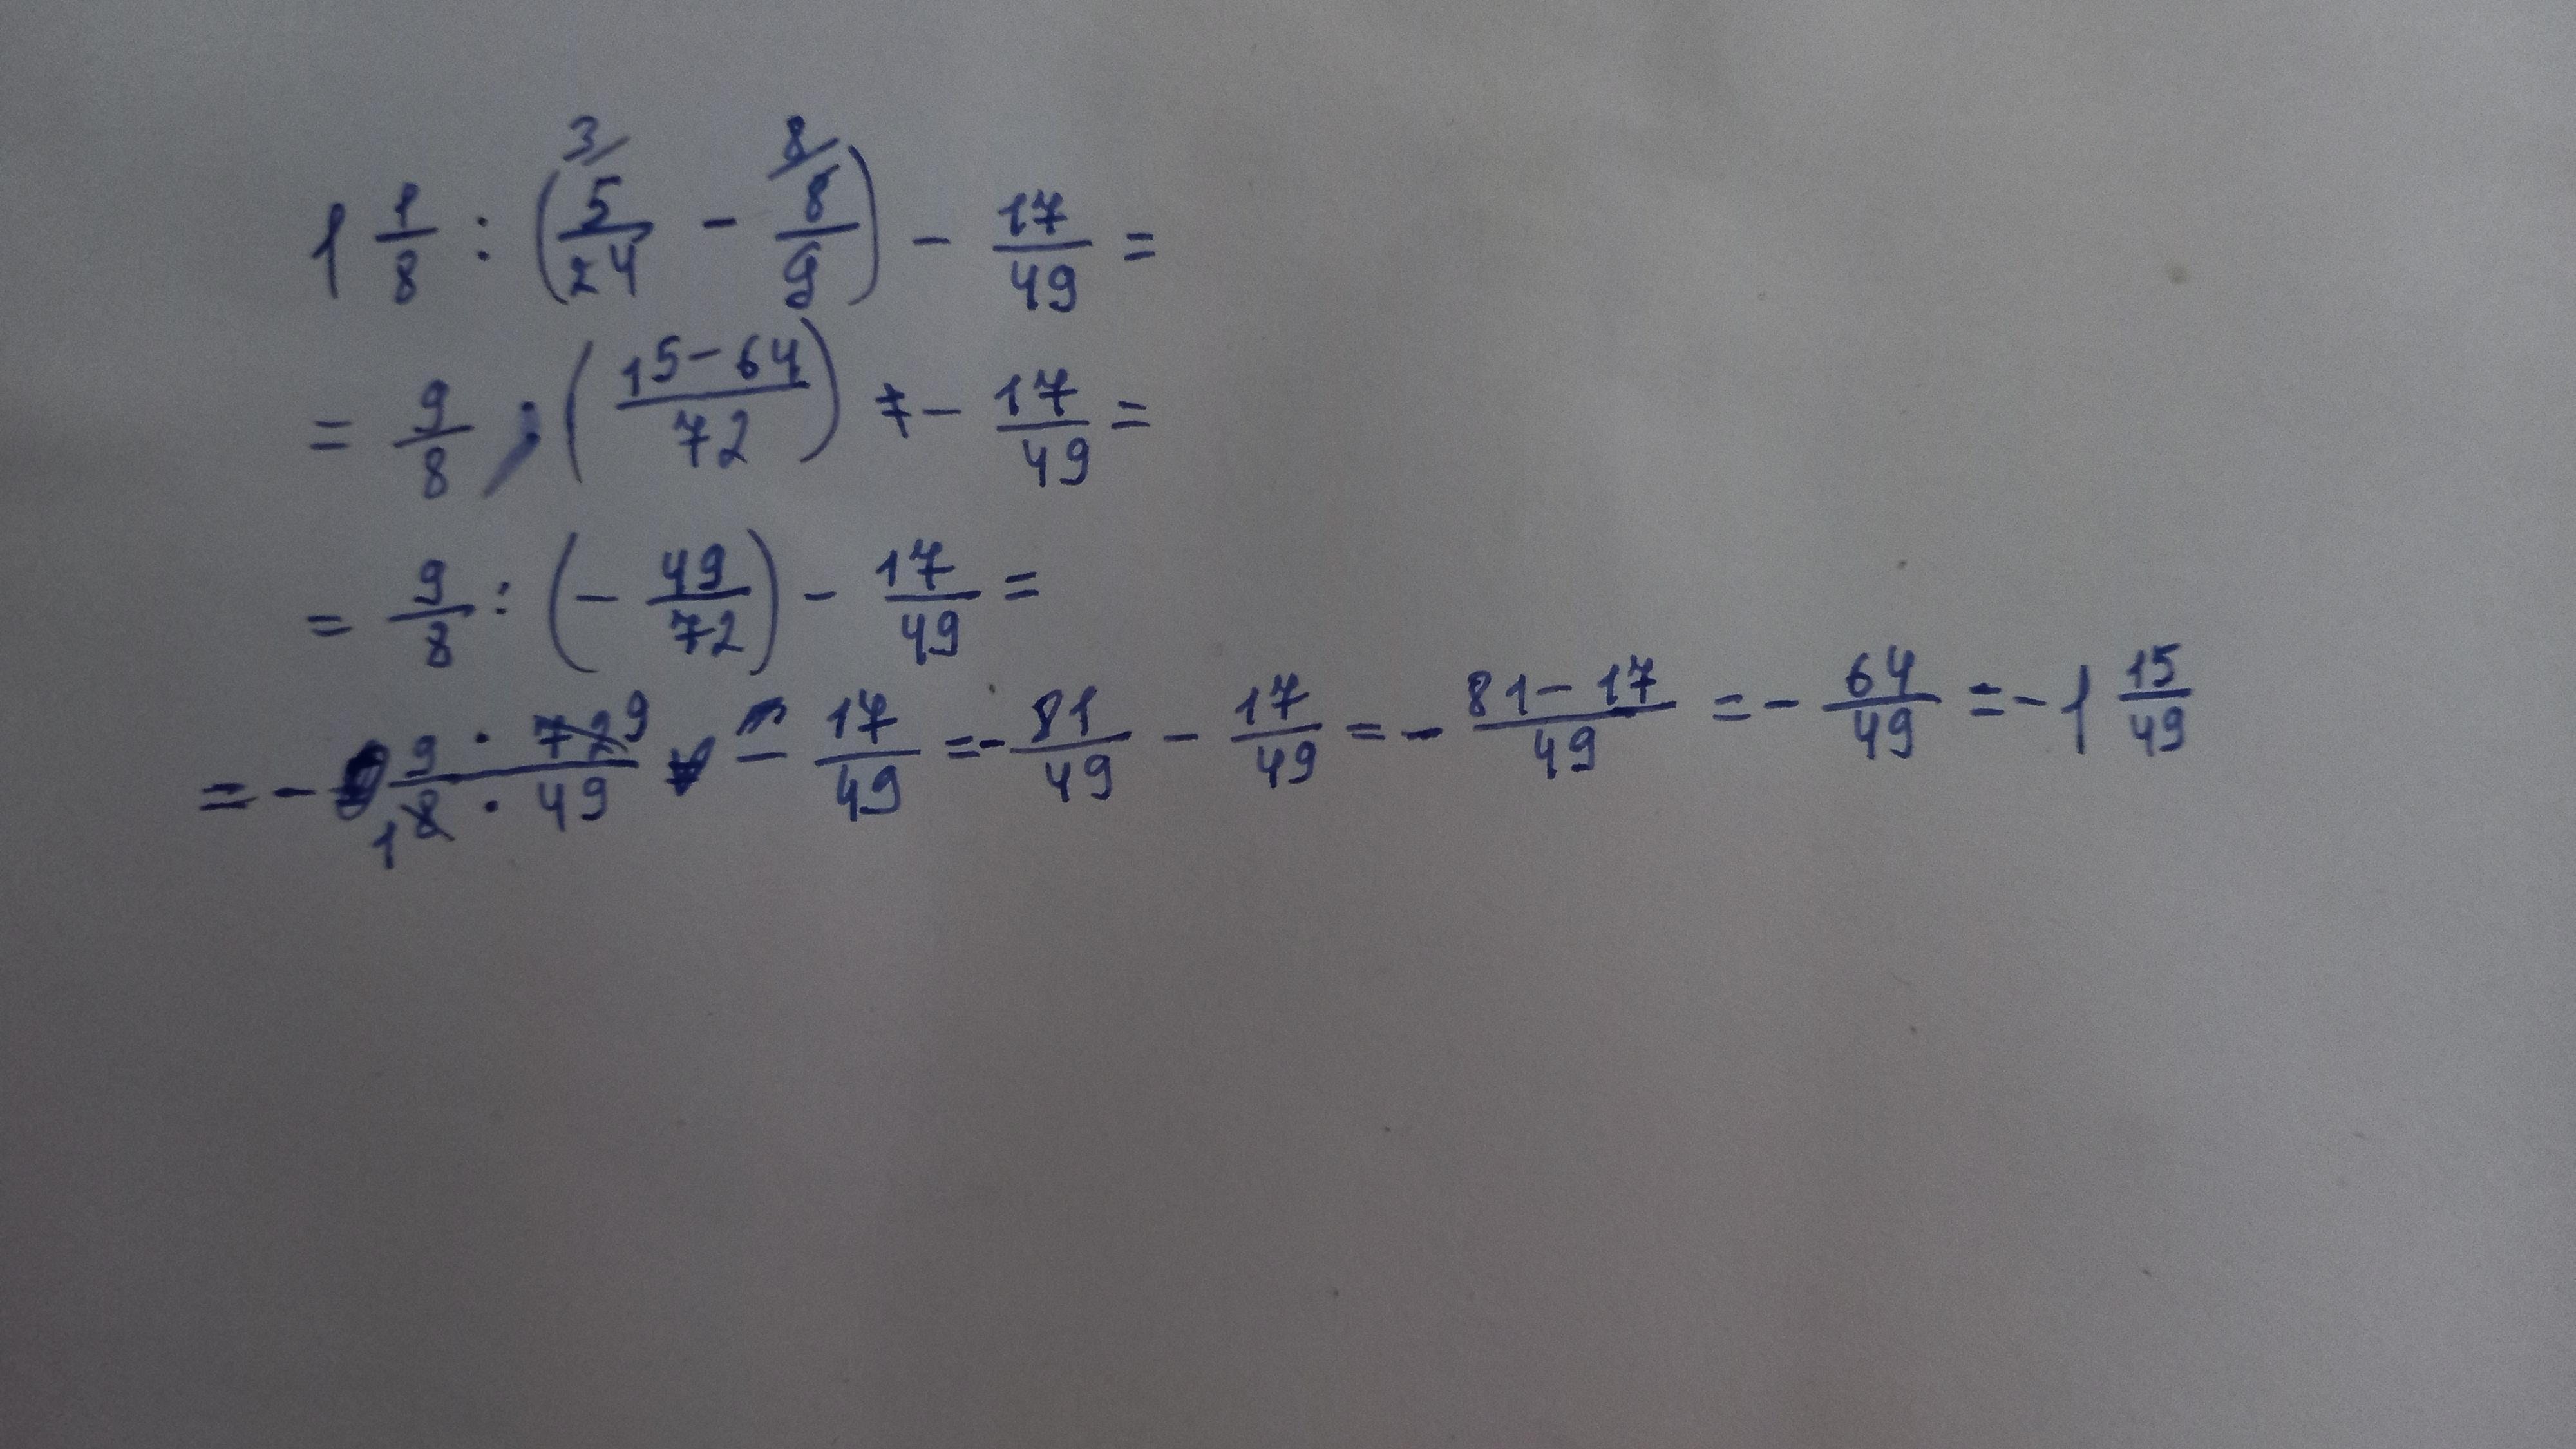 1 1/8 : (5/24 - 8/9) - 17/49 =
= 9/8 : ((15-64)/72) - 17/49 =
= 9/8 : (- 49/72) - 17/49 =
= - (9 · 72)/(8 · 49) - 17/49 = - 81/49 - 17/49 = - (81-17)/49 = - 64/49 = - 1 15/49